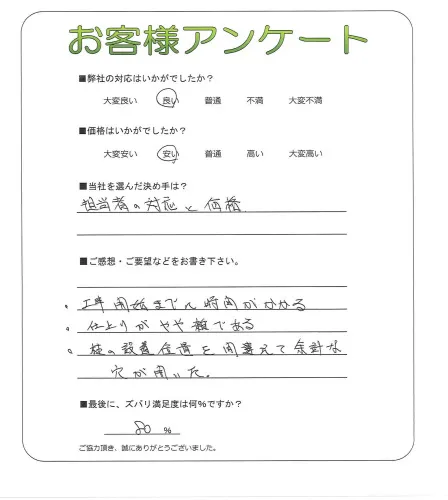 お客様アンケート
■弊社の対応はいかがでしたか？
大変良い 良い 普通 不満 大変不満
■価格はいかがでしたか？
大変安い 安い 普通 高い 大変高い
■当社を選んだ決め手は？
担当者の対応と価格
■ご感想・ご要望などをお書き下さい。
・工事開始までに時間がかかる
・仕上りがやや雑である
・柱の設置位置を間違えて余計な
穴が開いた。
■最後に、ズバリ満足度は何％ですか？
80 %
ご協力頂き、誠にありがとうございました。